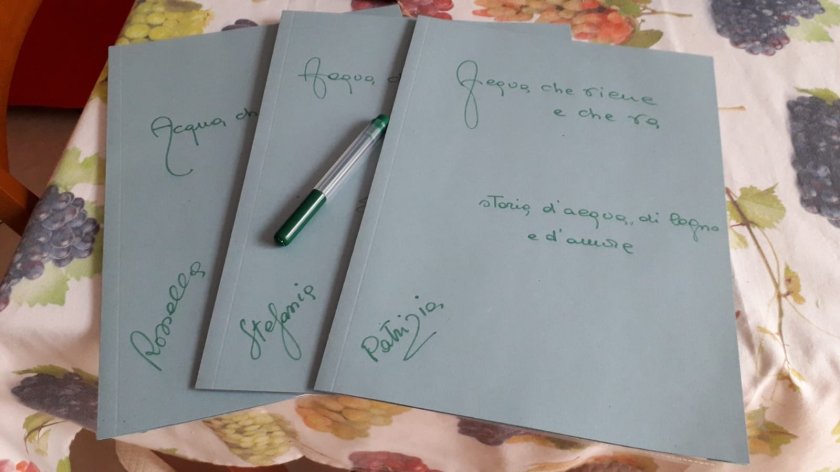 Acqua ch
Rossella
Acqua c
Stefania
Acqua che viene
e che va
storia d'acqua, di legno
e d'amore
Patrizia